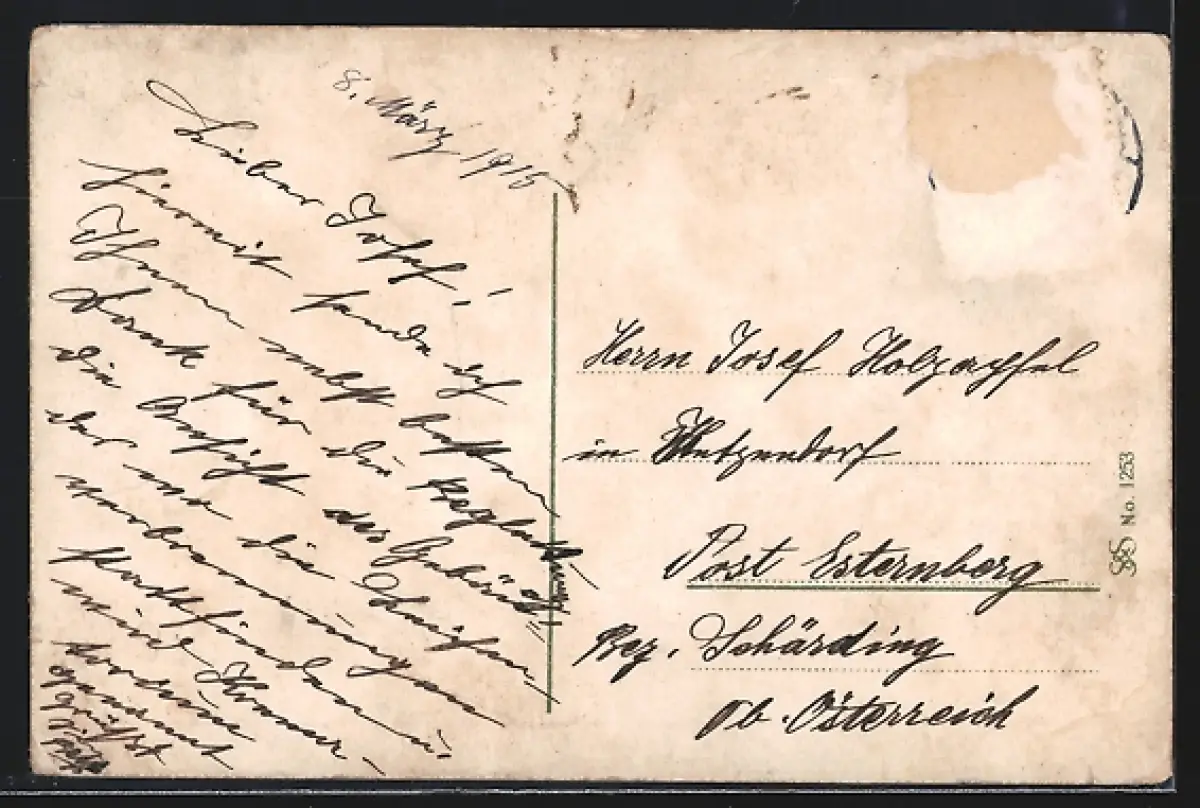 8. März 1915
Lieber Josef!
hiermit sende ich
Ihnen nebst bestem
Dank für die
die Ansicht des Gebäudes
der wo die Leichen
verbrennungen
stattfinden u.
wird
genannt
Herrn Josef Holzapffel
in Hetzendorf
Post Esternberg
Bez. Schärding
Ob. Österreich
No. 1253